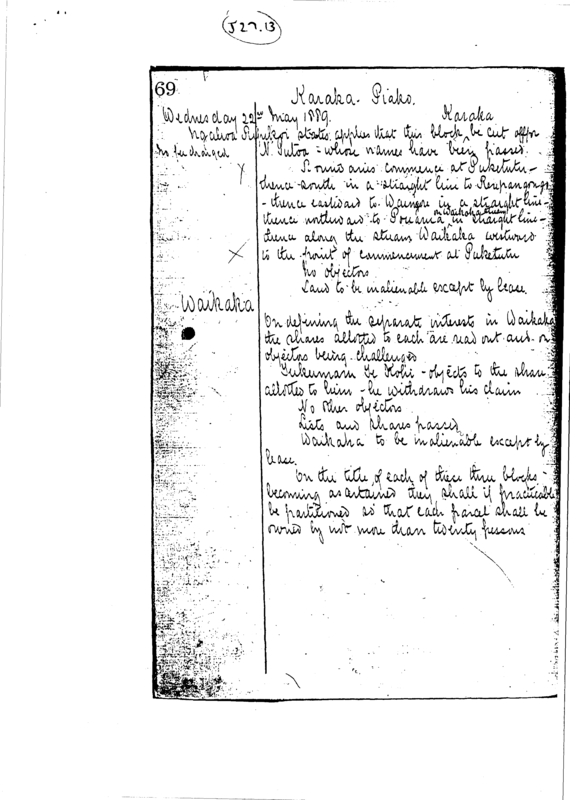 J27.13
69
Karaka - Piako.
Wednesday 22nd May 1889. Karaka
Ngahoa states applies that this block be cut off for
No fee charged N. Tutoa - whose names have been passed.
Boundaries commence at Puketutu -
thence south in a straight line to
- thence eastward to in a straight line -
thence northward to on Waikaka stream in straight line -
thence along the stream Waikaka westward
to the point of commencement at Puketutu
No objectors
Land to be inalienable except by lease.
Waikaka
On defining the separate interests in Waikaka
the shares allotted to each are read out and on
objectors being challenged
Te Kohi - objects to the share
allotted to him - he withdraws his claim
No other objectors
Lists and shares passed
Waikaka to be inalienable except by
lease.
On the title of each of these three blocks -
becoming ascertained they shall if practicable
be partitioned so that each parcel shall be
owned by not more than twenty persons